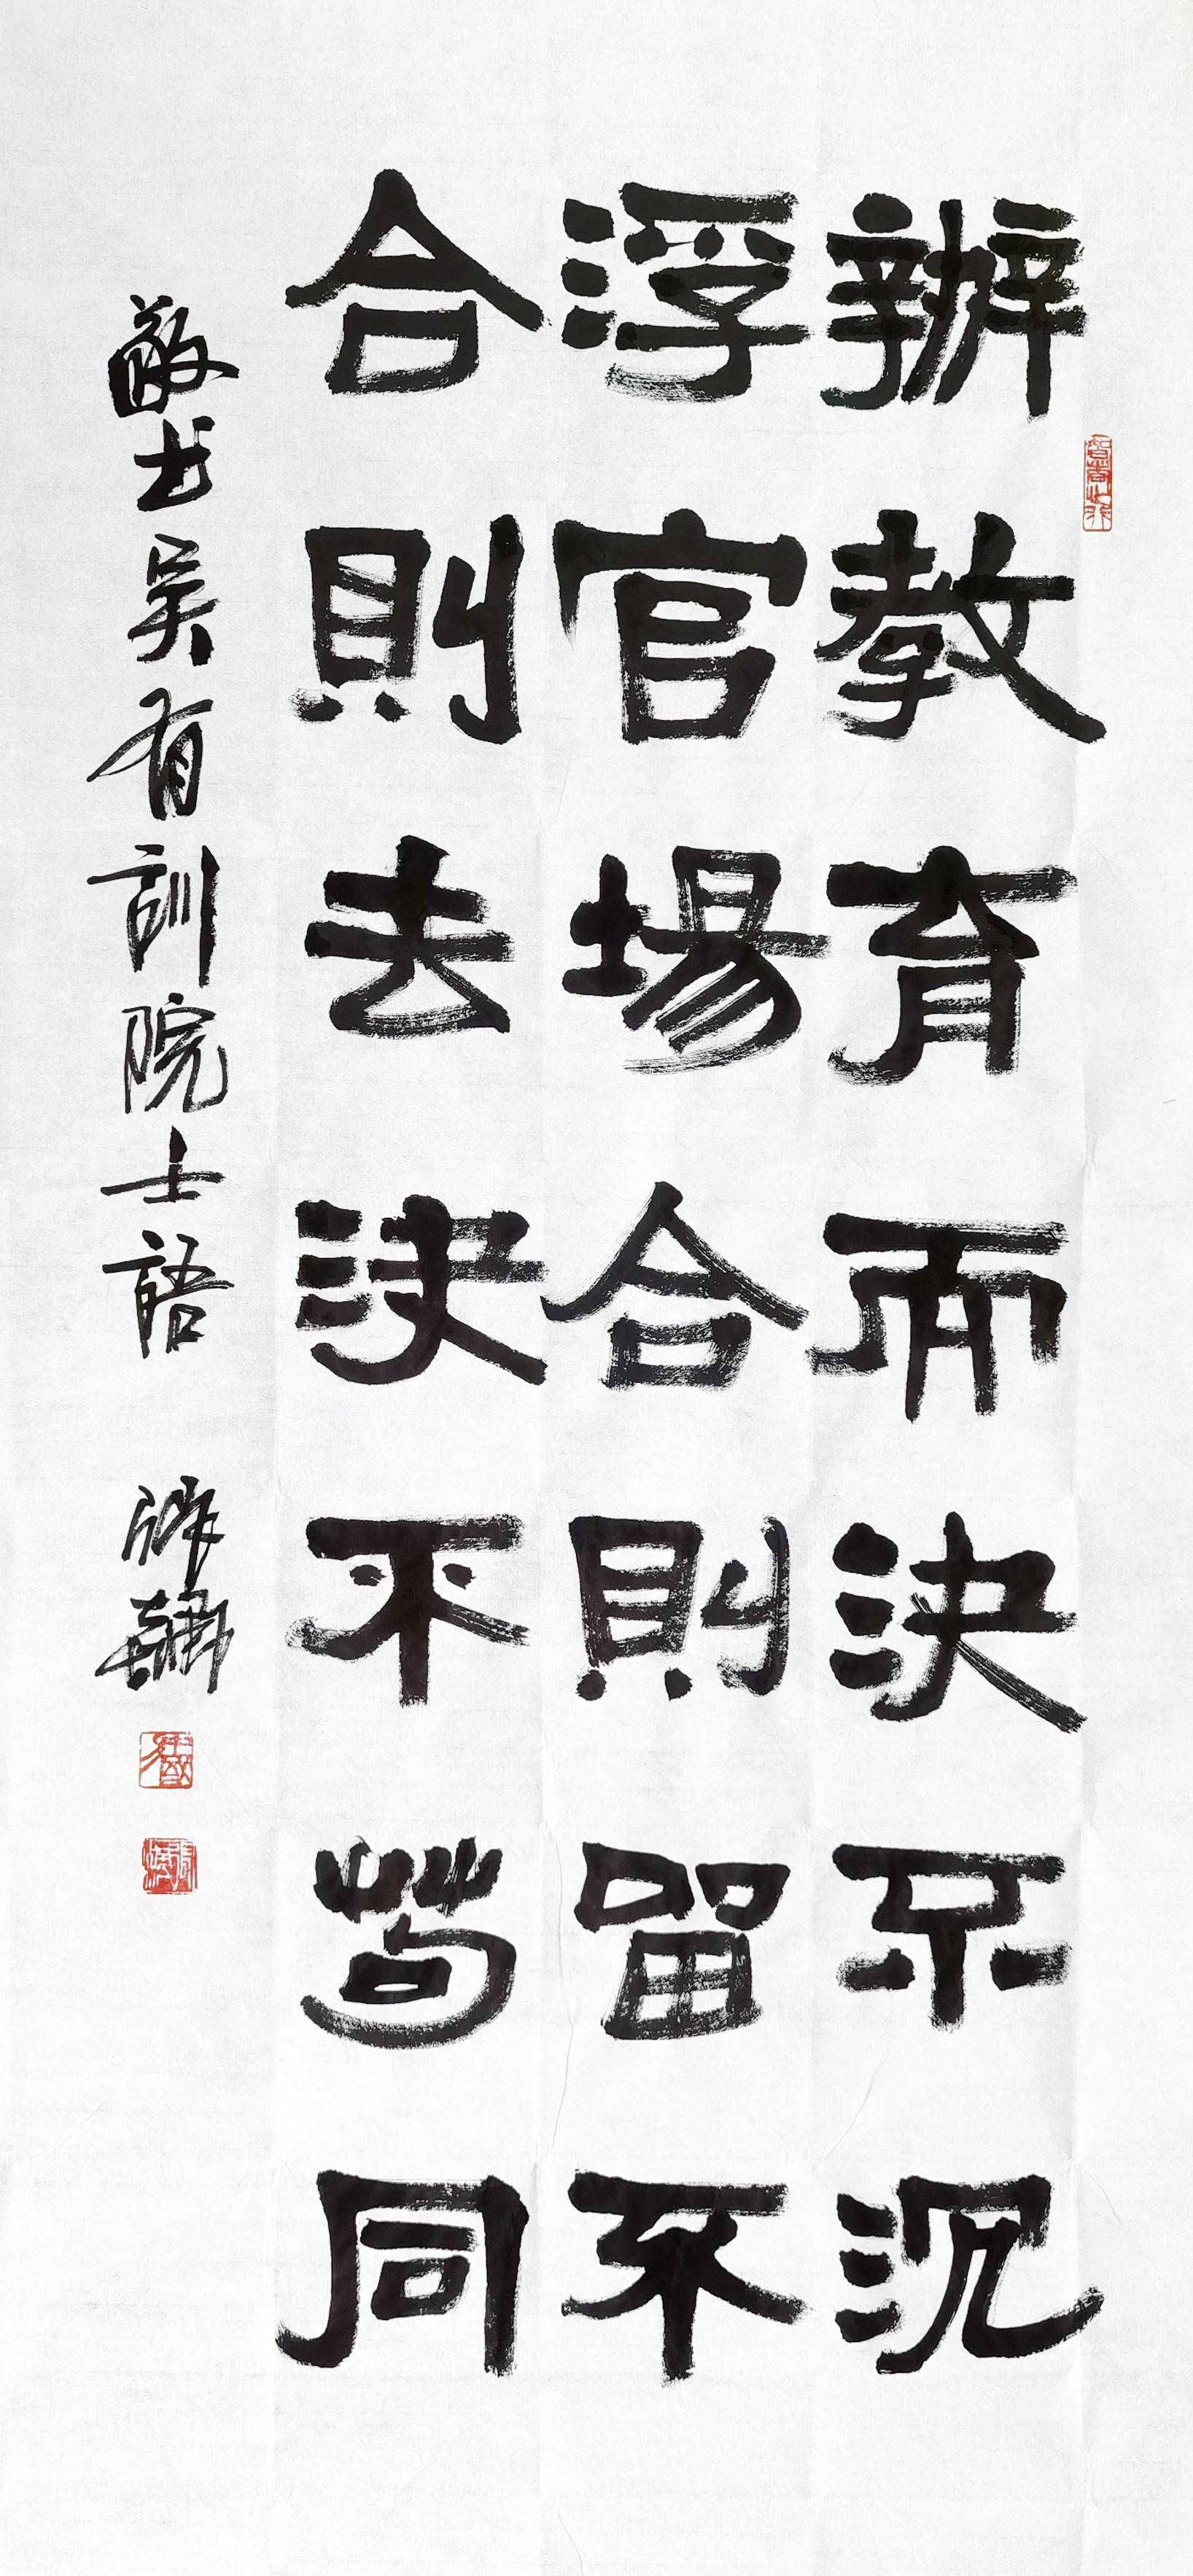 辦教育而決不沉
浮官場合則留不
合則去決不苟同
敬书吳有訓院士語